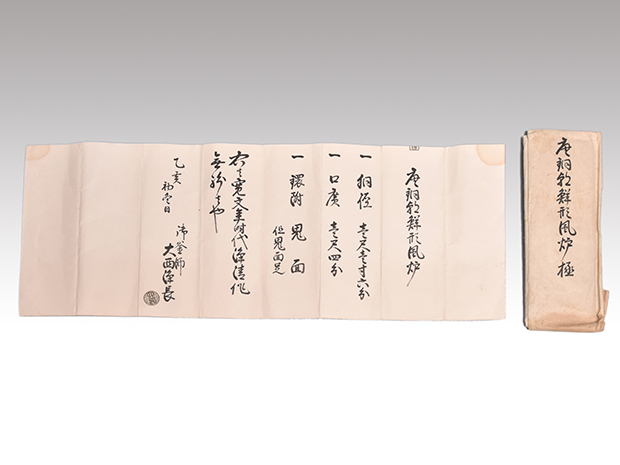 唐銅朝鮮形風炉
一 胴径 壱尺壱寸六分
一 口広 壱尺四分
一 鐶附 鬼面
但鬼面足
右者寛文年時代浄清作
無紛者也
乙亥
御釜師
大西浄長
唐銅朝鮮形風炉 極